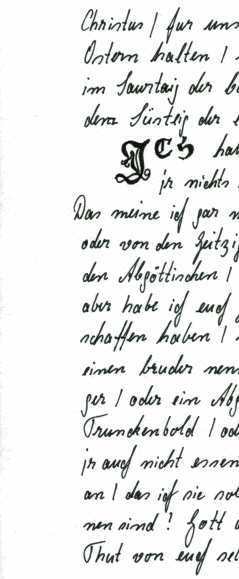 Christus / fur uns
Ostern halten /
im Saurtaig der
dem Süsteig der
Ich hab
jr nichts
Das meine ich gar n
oder von den Geitzig
den Abgöttischen /
aber habe ich euch
schaffen haben /
einen bruder nenn
ger / oder ein Abg
Trunckenbold / od
jr auch nicht essen
an / das ich sie sol
nen sind? Gott
Thut von euch sel